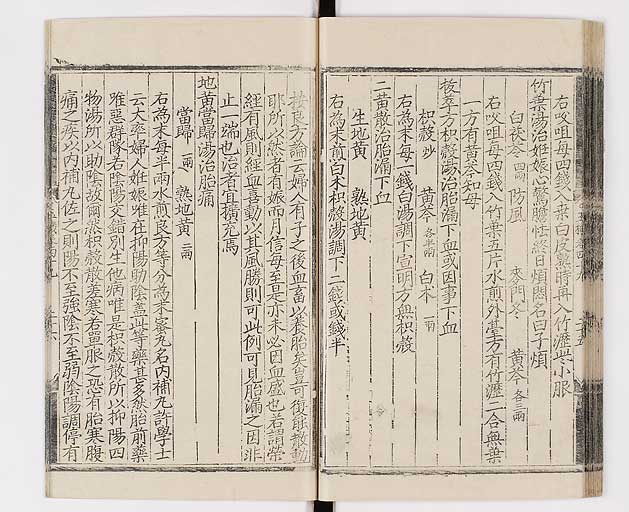 右㕮咀每四錢入葉白皮熬時再入竹瀝半小服
竹葉湯治妊娠心驚膽怯終日煩悶名曰子煩
白茯苓四兩 防風 麥門冬 黃芩各三兩
右㕮咀每四錢入竹葉五片水煎外臺方有竹瀝二合無葉
一方有黃芩知母
枳殼湯治胎漏下血或因事下血
枳殼炒 黃芩各半兩 白朮一兩
右為末每一錢白湯調下宣明方無枳殼
二黃散治胎漏下血
生地黃 熟地黃
右為末煎白朮枳殼湯調下二錢或錢半
按良方論云婦人有子之後血畜以養胎矣豈可復能散動
耶所以然者有娠而月信每至是亦未必因血盛也若謂榮
經有風則經血喜動以其風勝則可此例可見胎漏之因非
止一端也治者宜擴充焉
地黃當歸湯治胎痛
當歸一兩 熟地黃二兩
右為末每半兩水煎良方等分為末蜜丸名內補丸許學士
云大率婦人妊娠唯在抑陽助陰盖此等藥甚多然胎前藥
唯惡群隊若陰陽交錯別生他病唯是枳殼散所以抑陽四
物湯所以助陰故爾然枳殼散差寒若單服之恐有胎寒腹
痛之疾以內補丸佐之則陽不至強陰不至弱陰陽調停有